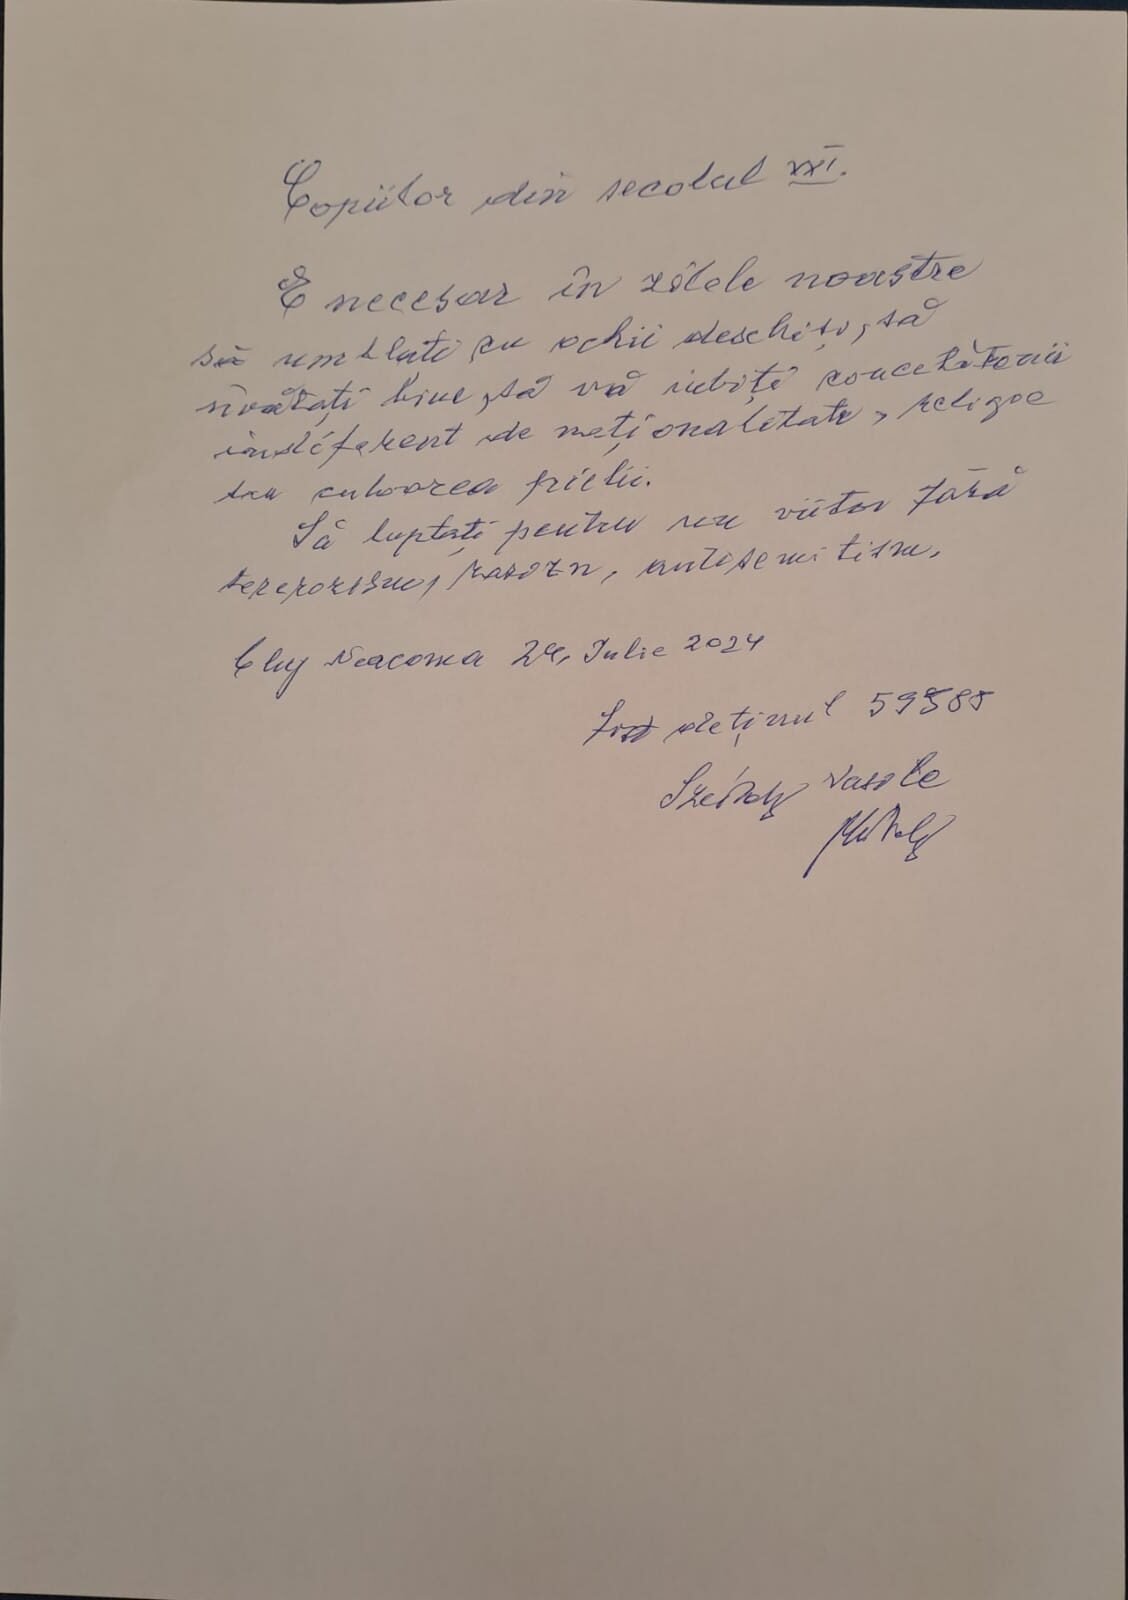 Copiilor din secolul XXI.
E necesar în zilele noastre
să umblați cu ochii deschiși, să
învățați bine, să vă iubiți concetățenii
indiferent de naționalitate, religie
sau culoarea pielii.
Să luptați pentru un viitor fără
terorism, rasism, antisemitism.
Cluj Napoca 24, Iulie 2024
Fost deținul
Vasile